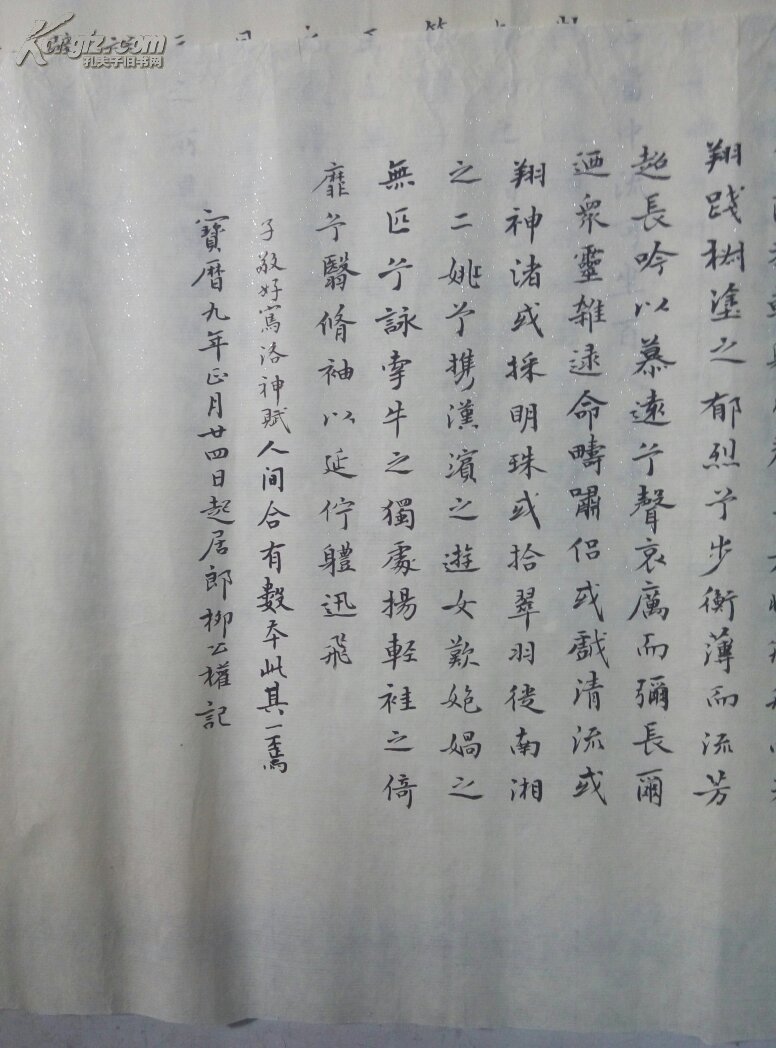 翔踐椒塗之郁烈兮步衡薄而流芳
超長吟以慕遠兮聲哀厲而彌長爾
迺衆靈雜遝命疇嘯侶或戲清流或
翔神渚或採明珠或拾翠羽從南湘
之二姚兮攜漢濱之遊女歎匏媧之
無匹兮詠牽牛之獨處揚輕袿之倚
靡兮翳脩袖以延佇軆迅飛
子敬好寫洛神賦人间合有數本此其一焉
寶曆九年正月廿四日起居郎柳公權記
Kongfz.com
孔夫子旧书网